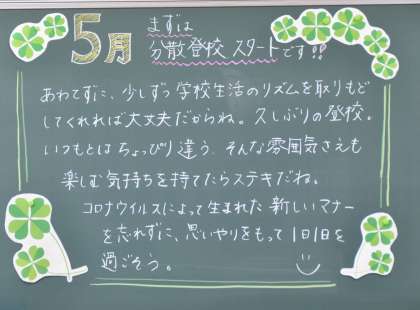 5月
まずは
分散登校 スタートです!!
あわてずに、少しずつ学校生活のリズムを取りもど
してくれれば大丈夫だからね。久しぶりの登校。
いつもとはちょっぴり違う、そんな雰囲気さえも
楽しむ気持ちを持てたらステキだね。
コロナウイルスによって生まれた新しいマナー
を忘れずに、思いやりをもって1日1日を
過ごそう。